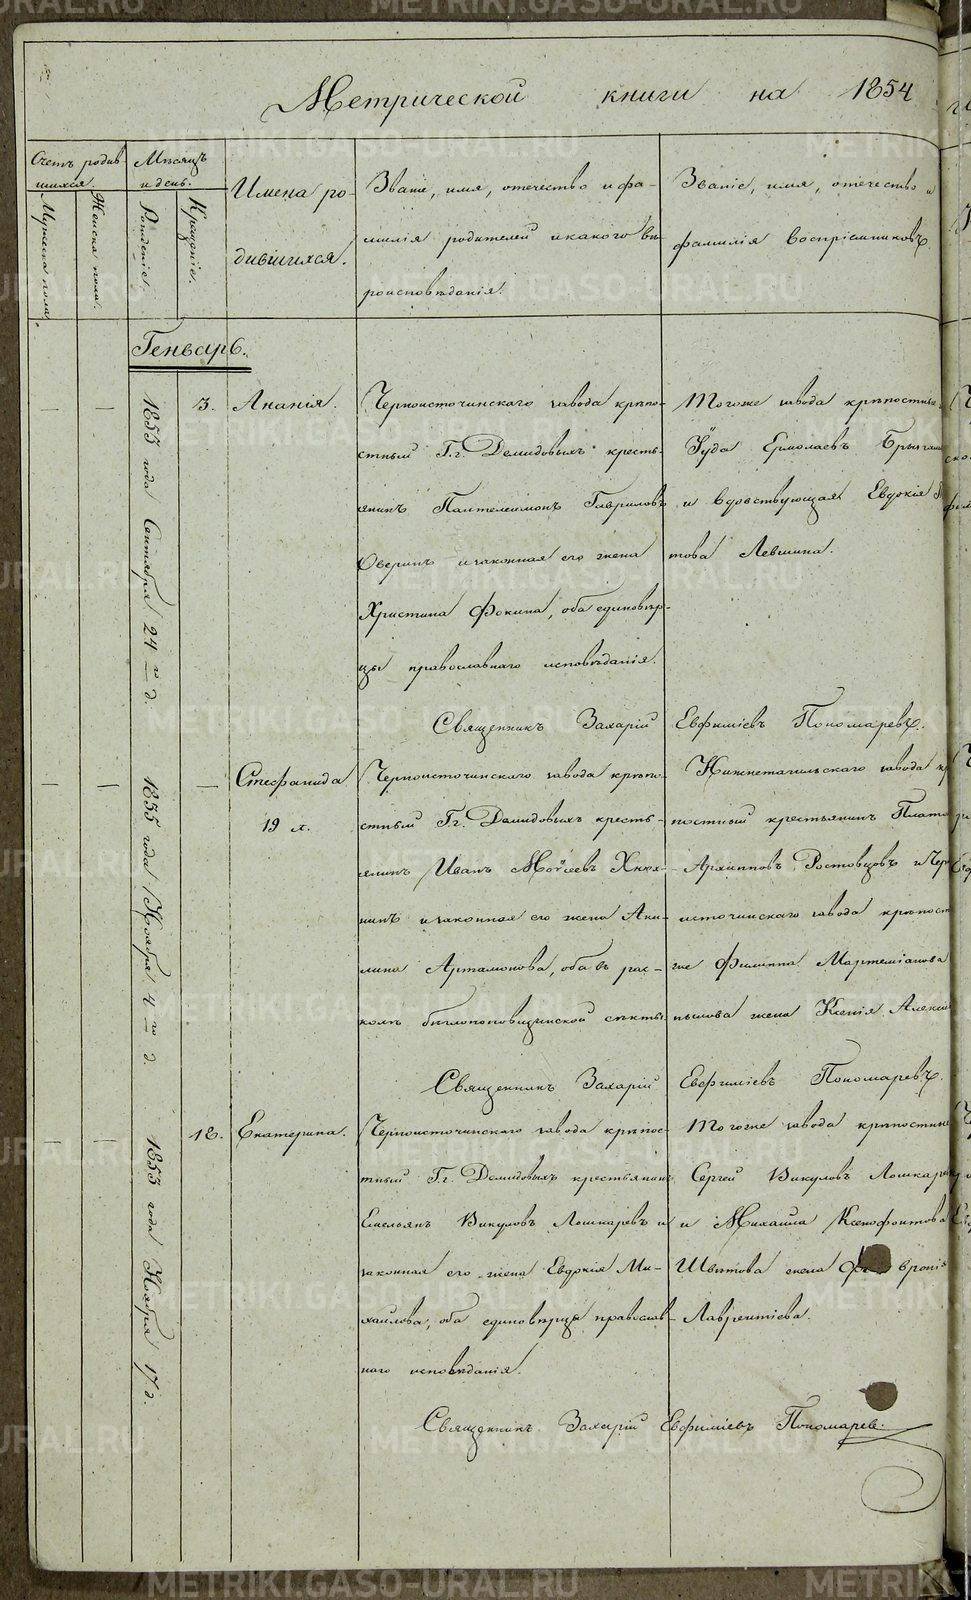 Метрической книги на 1854
Счетъ родив-
шихся.
Мѣсяцъ
и день.
Мужеска пола.
Женска пола.
Рожденіе.
Крещеніе.
Имена ро-
дившихся.
Званіе, имя, отечество и фа-
милія родителей и какого вѣ-
роисповѣданія.
Званіе, имя, отечество и
фамилія воспріемниковъ.
Генварь.
— — 1853 года Сентября 24го д. 3. Ананія.
Черноисточинскаго завода крѣпо-
стный Г.г. Демидовыхъ кресть-
янинъ Пантелеимонъ Гавриловъ
Оверинъ и законная его жена
Христина Фокина, оба единовѣр-
цы православнаго исповѣданія.
Тогоже завода крѣпостный
Іуда Ермолаевъ
и вдовствующая Евдокія
това Левшина.
Священникъ Захарій Евфиміевъ Пономаревъ.
— — 1853 года Ноября 4го д. — Стефанида
19 л.
Черноисточинскаго завода крѣпо-
стный Гг. Демидовыхъ кресть-
янинъ Иванъ Мойсеевъ
нинъ и законная его жена Аку-
лина Артамонова, оба въ рас-
колѣ бѣглопоповщинской секты.
Нижнетагильскаго завода кр
постный крестьянинъ Плато
Архиповъ Ростовцовъ и Чер
источинскаго завода крѣпост
же Филиппа Мартеміанова
пылова жена Ксенія Алекс
Священникъ Захарій Евфиміевъ Пономаревъ.
— — 1853 года Ноября 17. д. 18. Екатерина.
Черноисточинскаго завода крѣпос-
тный Г.г. Демидовыхъ крестьянинъ
Емельянъ Викуловъ Лошкаревъ и
законная его жена Евдокія Ми-
хайлова, оба единовѣрцы православ-
наго исповѣданія.
Тогоже завода крѣпостные
Сергей Викуловъ Лошкаре
и Михаила Ксенофонтова
Швѣтова жена вронія
Лаврентіева.
Священникъ Захарій Евфиміевъ Пономаревъ.
METRIKI.GASO-URAL.RU